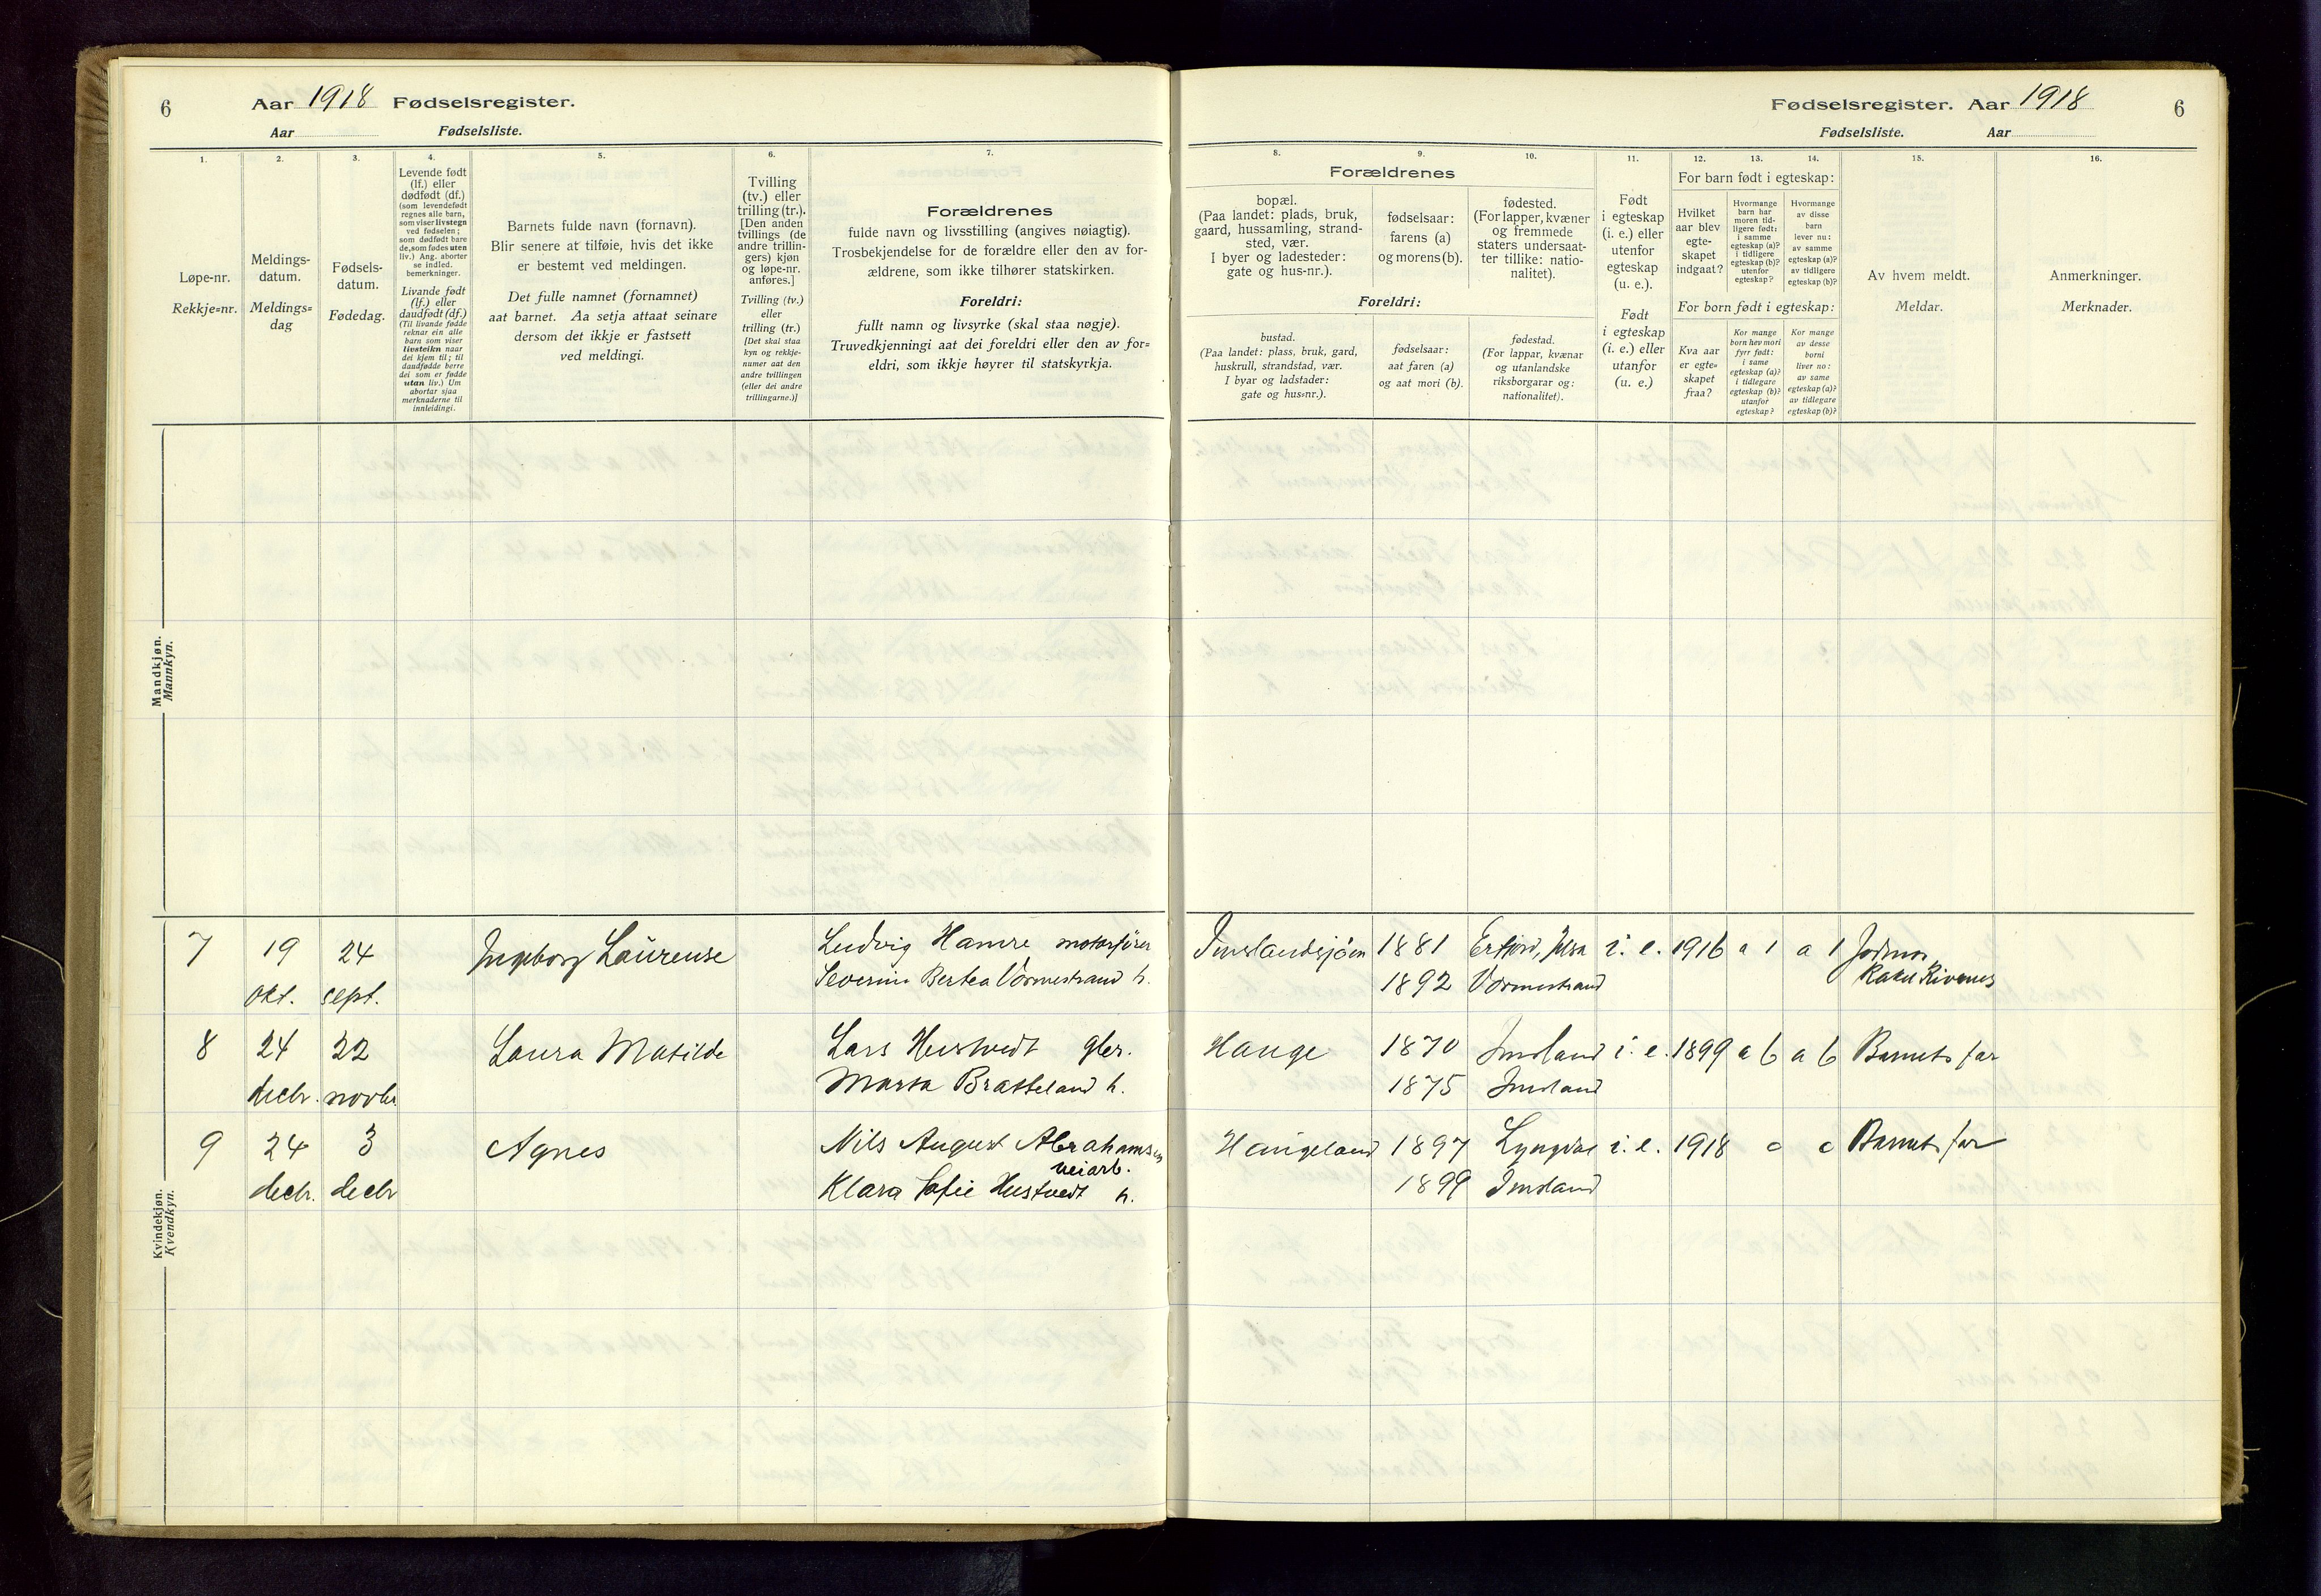 6
Aar 1918 Fødselsregister.
Aar Fødselsliste.
1.
2.
3.
4.
5.
6.
7.
Løpe-nr.
Rekkje=nr.
Meldings-
datum.
Meldings=
dag
Fødsels-
datum.
Fødedag.
Levende født
(lf.) eller
dødfødt (df.)
(som levendefødt
regnes alle barn,
som viser livstegn
ved fødselen;
som dødfødt bare
de, som fødes uten
liv.) Ang. aborter
se indled.
bemerkninger.
Livande født
(lf.) eller
daudfødt (df.)
(Til livande fødde
reknar ein alle
barn som viser
livsteikn naar
dei kjem til; til
daudfødde berre
dei som er fødde
utan liv.) Um
abortar sjaa
merknaderne til
innleidingi.
Barnets fulde navn (fornavn).
Blir senere at tilføie, hvis det ikke
er bestemt ved meldingen.
Det fulle namnet (fornamnet)
aat barnet. Aa setja attaat seinare
dersom det ikkje er fastsett
ved meldingi.
Tvilling
(tv.) eller
trilling (tr.).
[Den anden
tvillings (de
andre trillin-
gers) kjøn
og løpe-nr.
anføres.]
Tvilling (tv.)
eller
trilling (tr.)
[Det skal staa
kyn og rekkje-
numer aat den
andre tvillingen
(eller dei andre
trillingarne.)]
Forældrenes
fulde navn og livsstilling (angives nøiagtig).
Trosbekjendelse for de forældre eller den av for-
ældrene, som ikke tilhører statskirken.
Foreldri:
fullt namn og livsyrke (skal staa nøgje).
Truvedkjenningi aat dei foreldri eller den av for=
eldri, som ikkje høyrer til statskyrkja.
Mandkjøn.
Mannkyn.
7 19 24 Ingeborg Laurense Ludvig Hamre motorfører
okt. sept. Severine Bertea Vormestrand h.
8 24 22 Laura Matilde Lars Hustvedt gbr.
decbr. novbr. Marta Bratteland h.
9 24 3 Agnes Nils August Abrahamsen
veiarb.
decbr. decbr Klara Sofie Hustvedt h.
Kvindekjøn.
Kvendkyn.
Fødselsregister. Aar 1918 6
Fødselsliste. Aar
8.
9.
10.
11.
12.
13.
14.
15.
16.
Forældrenes
bopæl.
(Paa landet: plads, bruk,
gaard, hussamling, strand-
sted, vær.
I byer og ladesteder:
gate og hus-nr.).
fødselsaar:
farens (a)
og morens (b).
fødested.
(For lapper, kvæner
og fremmede
staters undersaat-
ter tillike: natio-
nalitet).
Foreldri:
bustad.
(Paa landet: plass, bruk, gard,
huskrull, strandstad, vær.
I byar og ladstader:
gate og hus=nr.).
fødselsaar:
aat faren (a)
og aat mori (b).
fødestad.
(For lappar, kvænar
og utanlandske
riksborgarar og:
nationalitet).
Født
i egteskap
(i. e.) eller
utenfor
egteskap
(u. e.).
Født
i egteskap
(i. e.) eller
utanfor
(u. e.)
For barn født i egteskap:
Hvilket
aar blev
egte-
skapet
indgaat?
Hvormange
barn har
moren tid-
ligere født:
i samme
egteskap (a)?
i tidligere
egteskap (b)?
utenfor
egteskap?
Hvormange
av disse
barn
lever nu:
av samme
egteskap (a)?
av tidligere
egteskap (b)?
For born født i egteskap:
Kva aar
er egte=
skapet
fraa?
Kor mange
born hev mori
fyrr født:
i same
egteskap (a)?
i tidlegare
egteskap (b)?
utanfor
egteskap?
Kor mange
av desse
borni
liver no:
av same
egteskap (a)?
av tidlegare
egteskap (b)?
Av hvem meldt.
Meldar.
Anmerkninger.
Merknader.
Imslandsjøen 1881 Erfjord, Jelsa i. e. 1916 a 1 a 1 Jordmor
Rakel Rivenes
1892 Vormestrand
Hauge 1870 Imsland i. e. 1899 a 6 a 6 Barnets far
1875 Imsland
Haugeland 1897 Lyngdal i. e. 1918 o o Barnets far
1899 Imsland